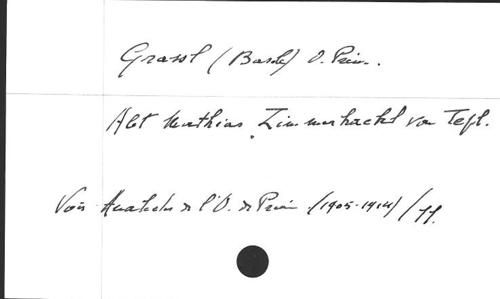 Grassl (Basile) O. Prém.
Abt Mathias Zimmerhackl von Tepl.
Voir Analectes de l'O. de Prém. (1905-1914) /